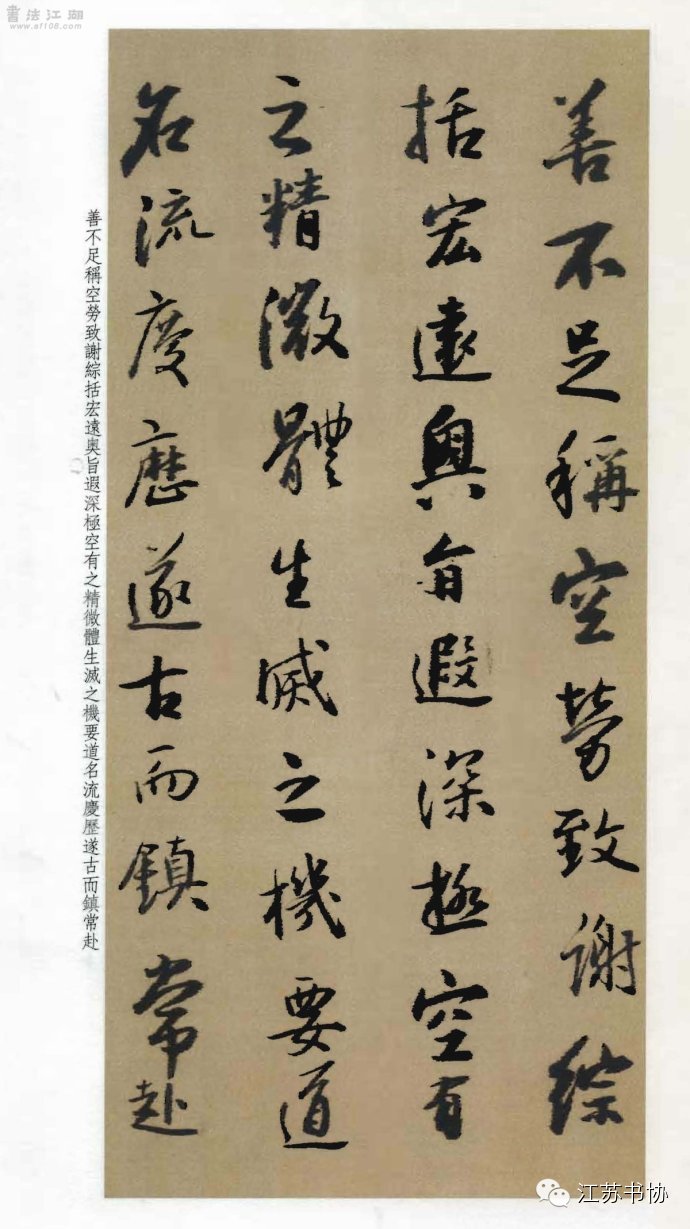 書法江湖
www.sf108.com
善不足稱空勞致謝綜
括宏遠奥旨遐深極空有
之精微體生滅之機要道
名流慶歷遂古而鎮常赴
善不足稱空勞致謝綜括宏遠奥旨遐深極空有之精微體生滅之機要道名流慶歷遂古而鎮常赴
江苏书协